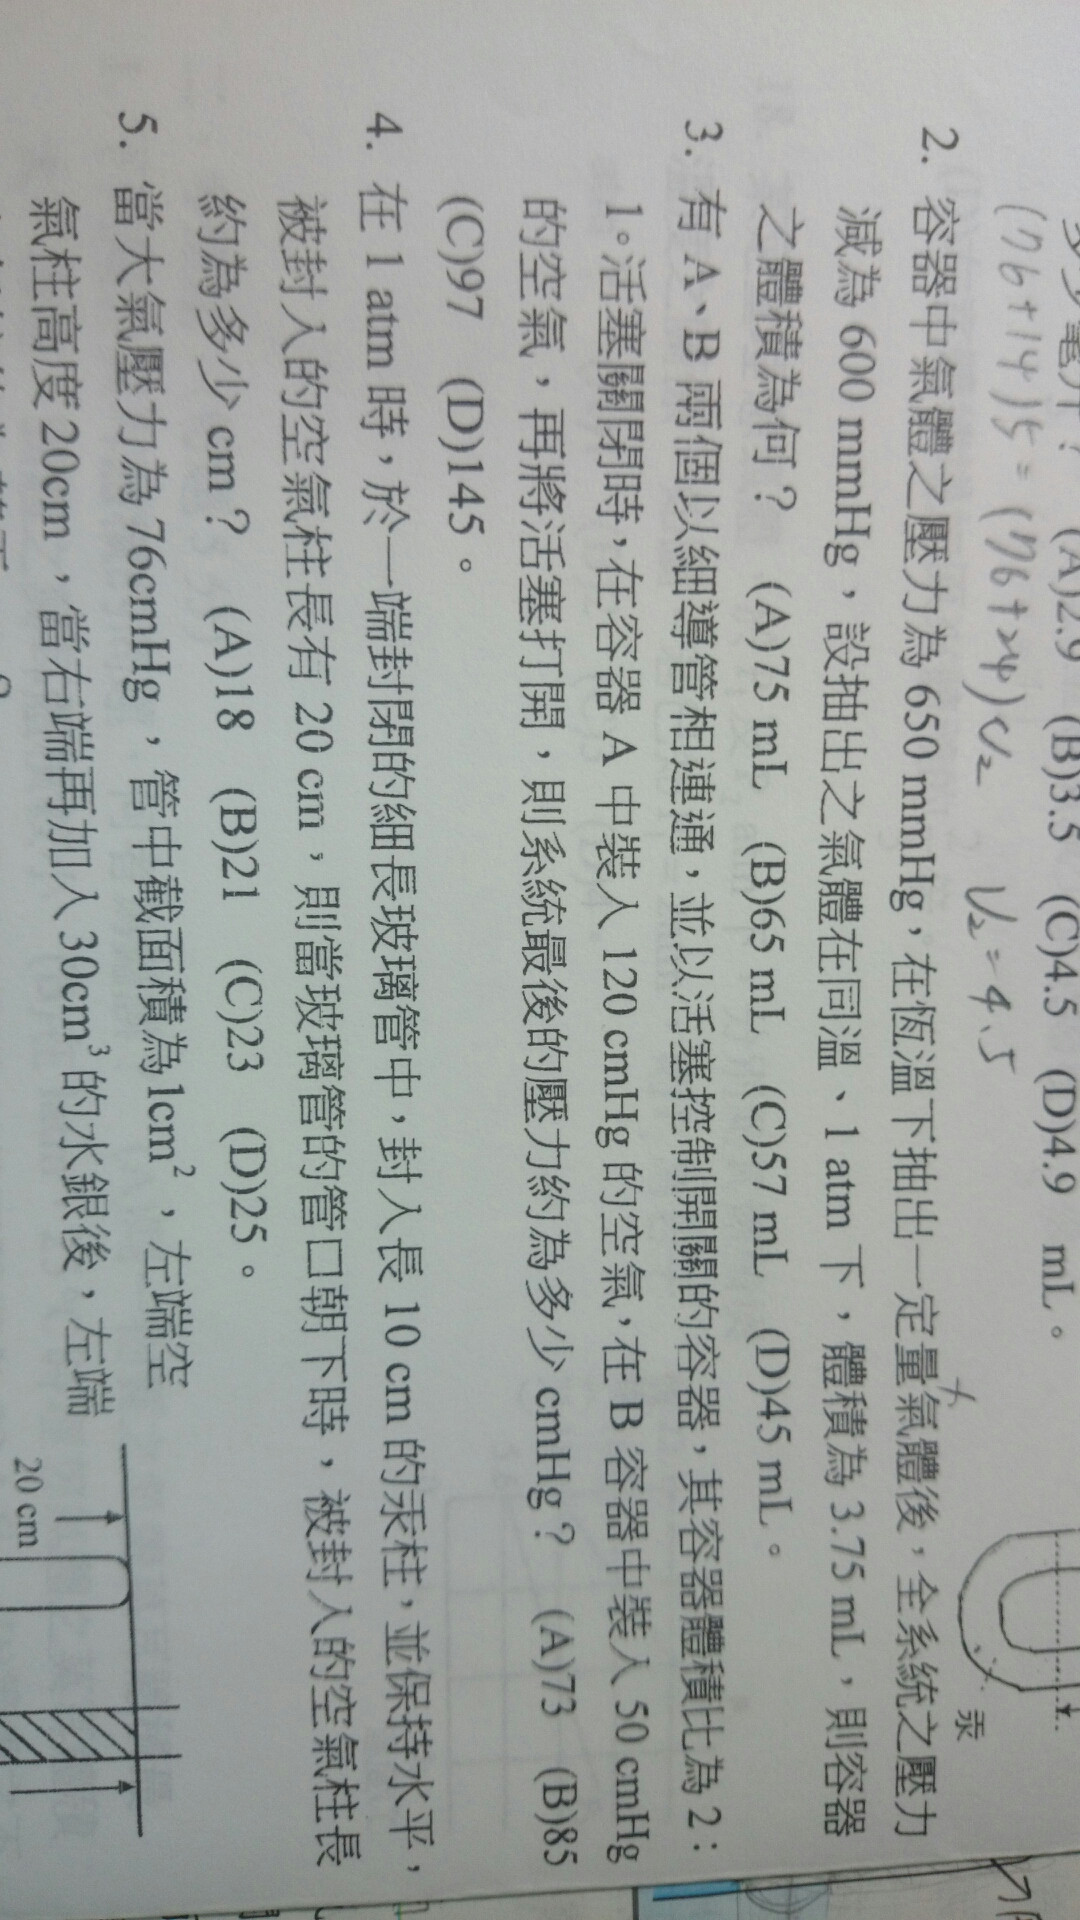 (A)2.9 (B)3.5 (C)4.5 (D)4.9 mL。
(76+14)5=(76+24)V₂ V₂=4.5
汞
2. 容器中氣體之壓力為 650 mmHg，在恆溫下抽出一定量氣體後，全系統之壓力
減為 600 mmHg，設抽出之氣體在同溫、1 atm 下，體積為 3.75 mL，則容器
之體積為何？ (A)75 mL (B)65 mL (C)57 mL (D)45 mL。
3. 有 A、B 兩個以細導管相連通，並以活塞控制開關的容器，其容器體積比為 2：
1。活塞關閉時，在容器 A 中裝入 120 cmHg 的空氣，在 B 容器中裝入 50 cmHg
的空氣，再將活塞打開，則系統最後的壓力約為多少 cmHg？ (A)73 (B)85
(C)97 (D)145。
4. 在 1 atm 時，於一端封閉的細長玻璃管中，封入長 10 cm 的汞柱，並保持水平，
被封入的空氣柱長有 20 cm，則當玻璃管的管口朝下時，被封入的空氣柱長
約為多少 cm？ (A)18 (B)21 (C)23 (D)25。
5. 當大氣壓力為 76cmHg，管中截面積為1cm²，左端空
氣柱高度 20cm，當右端再加入 30cm³ 的水銀後，左端
20 cm